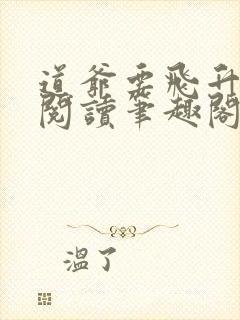 道爺要飛升
閱讀筆趣閣
溫了